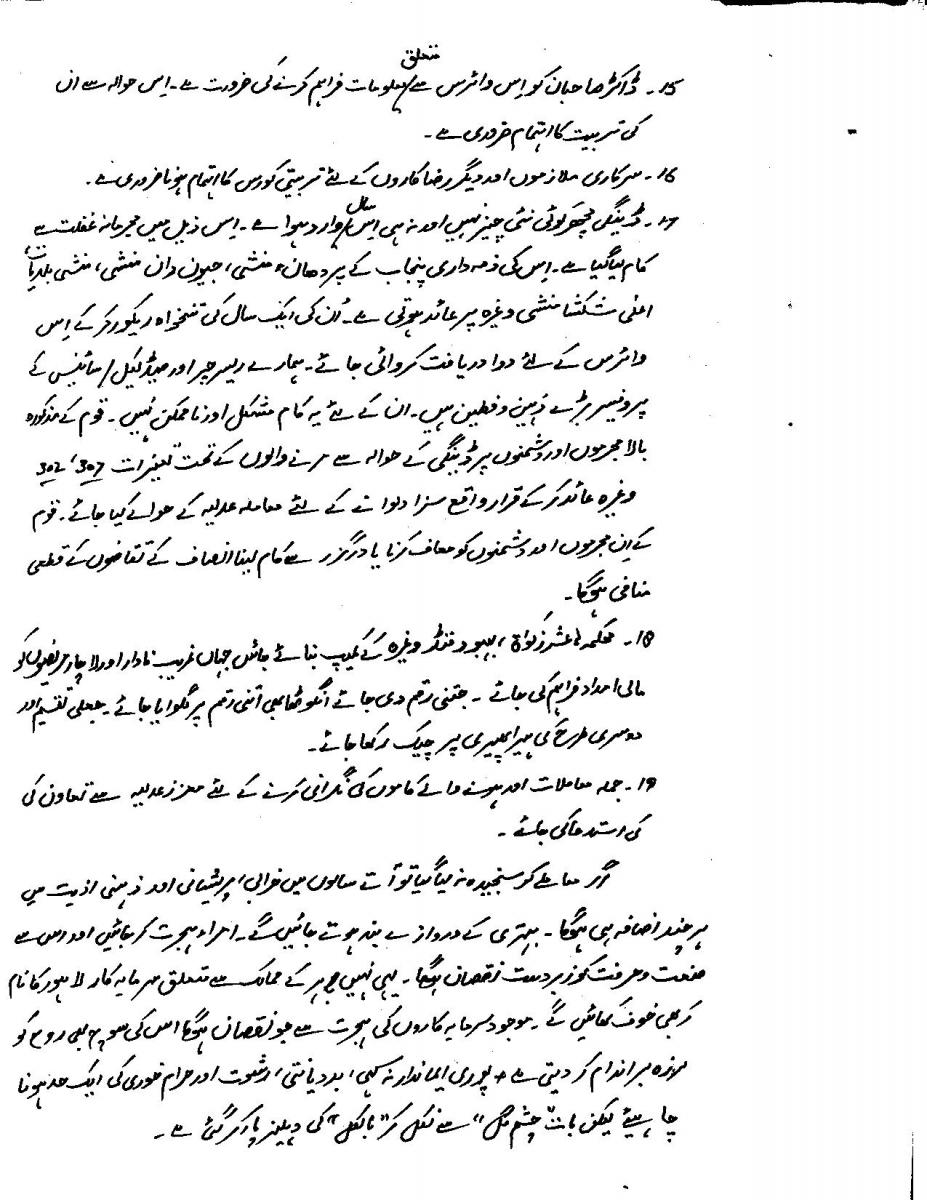 متعلق
15۔ ڈاکٹر صاحبان کو اس وائرس سے / معلومات فراہم کرنے کی ضرورت ہے۔ اس حوالہ سے ان
کی تربیت کا اہتمام ضروری ہے۔
16۔ سرکاری ملازموں اور دیگر رضاکاروں کے لئے تربیتی کورس کا اہتمام ہونا ضروری ہے۔
سال
17۔ ڈینگی مچھر کوئی نئی چیز نہیں اور نہ ہی اس / وارد ہوا ہے۔ اس ذیل میں مجرمانہ غفلت سے
کام لیا گیا ہے۔ اس کی ذمہ داری پنجاب کے پردھان منشی، جیون دان منشی، منشی بلدیات
اعلیٰ شکشا منشی وغیرہ پر عائد ہوتی ہے۔ اُن کی ایک سال کی تنخواہ ریکور کر کے اس
وائرس کے لئے دوا دریافت کروائی جائے۔ ہمارے ریسرچر اور میڈیکل / سائنس کے
پروفیسر بڑے ذہین و فطین ہیں۔ ان کے لئے یہ کام مشکل اور ناممکن نہیں۔ قوم کے مذکورہ
بالا مجرموں اور دشمنوں پر ڈینگی کے حوالہ سے مرنے والوں کے تحت تعزیرات 307، 302
وغیرہ عائد کر کے قرار واقع سزا دلوانے کے لئے معاملہ عدلیہ کے حوالے کیا جائے۔ قوم
کے ان مجرموں اور دشمنوں کو معاف کرنا یا درگزر سے کام لینا انصاف کے تقاضوں کے قطعی
منافی ہوگا۔
18۔ محکمہ عشر زکواۃ، بہبود فنڈ وغیرہ کے کیمپ بنائے جائیں جہاں غریب نادار اور لاچار مریضوں کو
مالی امداد فراہم کی جائے۔ جتنی رقم دی جائے انگوٹھا بھی اتنی رقم پر لگوایا جائے۔ جعلی تقسیم اور
دوسری طرح کی ہیرا پھیری پر چیک رکھا جائے۔
19۔ جملہ معاملات اور ہونے والے کاموں کی نگرانی کرنے کے لئے معزز عدلیہ سے تعاون کی
کی استدعا کی جائے۔
اگر معاملے کو سنجیدہ نہ لیا گیا تو آتے سالوں میں خرابی، پریشانی اور ذہنی اذیت میں
ہر چند اضافہ ہی ہوگا۔ بہتری کے دروازے بند ہوتے جائیں گے۔ امراء ہجرت کر جائیں اور اس سے
صنعت و حرفت کو زبردست نقصان ہوگا۔ یہی نہیں باہر کے ممالک سے متعلق سرمایہ کار لاہور کا نام
کر بھی خوف کھائیں گے۔ موجود سرمایہ کاروں کی ہجرت سے جو نقصان ہوگا اس کی سوچ بھی روح کو
لرزہ براندام کر دیتی ہے۔ پوری ایماندار نہ سہی، بددیانتی، رشوت اور حرام خوری کی ایک حد ہونا
چاہیئے لیکن بات "چشم گل" سے نکل کر "بالکل" کی دہلیز پار کر گئی ہے۔